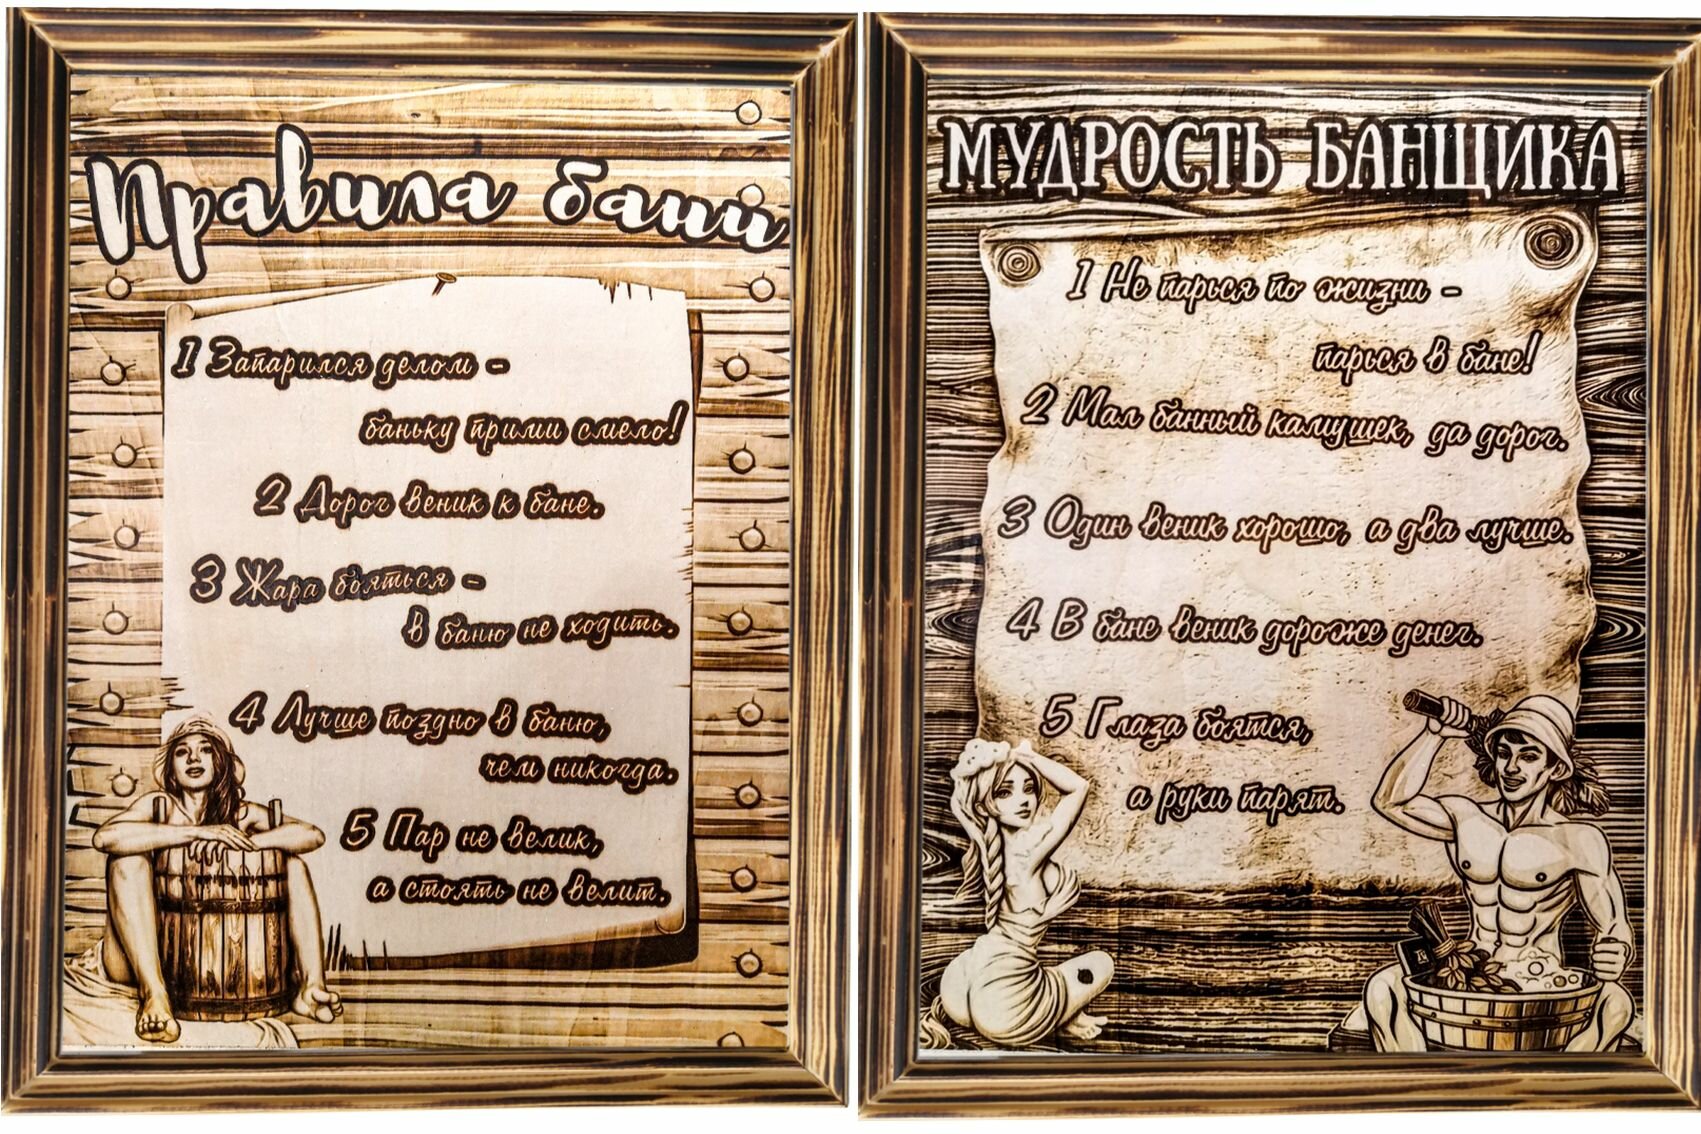 Правила бани
1 Запарился делом -
баньку прими смело!
2 Дорог веник к бане.
3 Жара бояться -
в баню не ходить.
4 Лучше поздно в баню,
чем никогда.
5 Пар не велик,
а стоять не велит.
МУДРОСТЬ БАНЩИКА
1 Не парься по жизни -
парься в бане!
2 Мал банный камушек, да дорог.
3 Один веник хорошо, а два лучше.
4 В бане веник дороже денег.
5 Глаза боятся,
а руки парят.